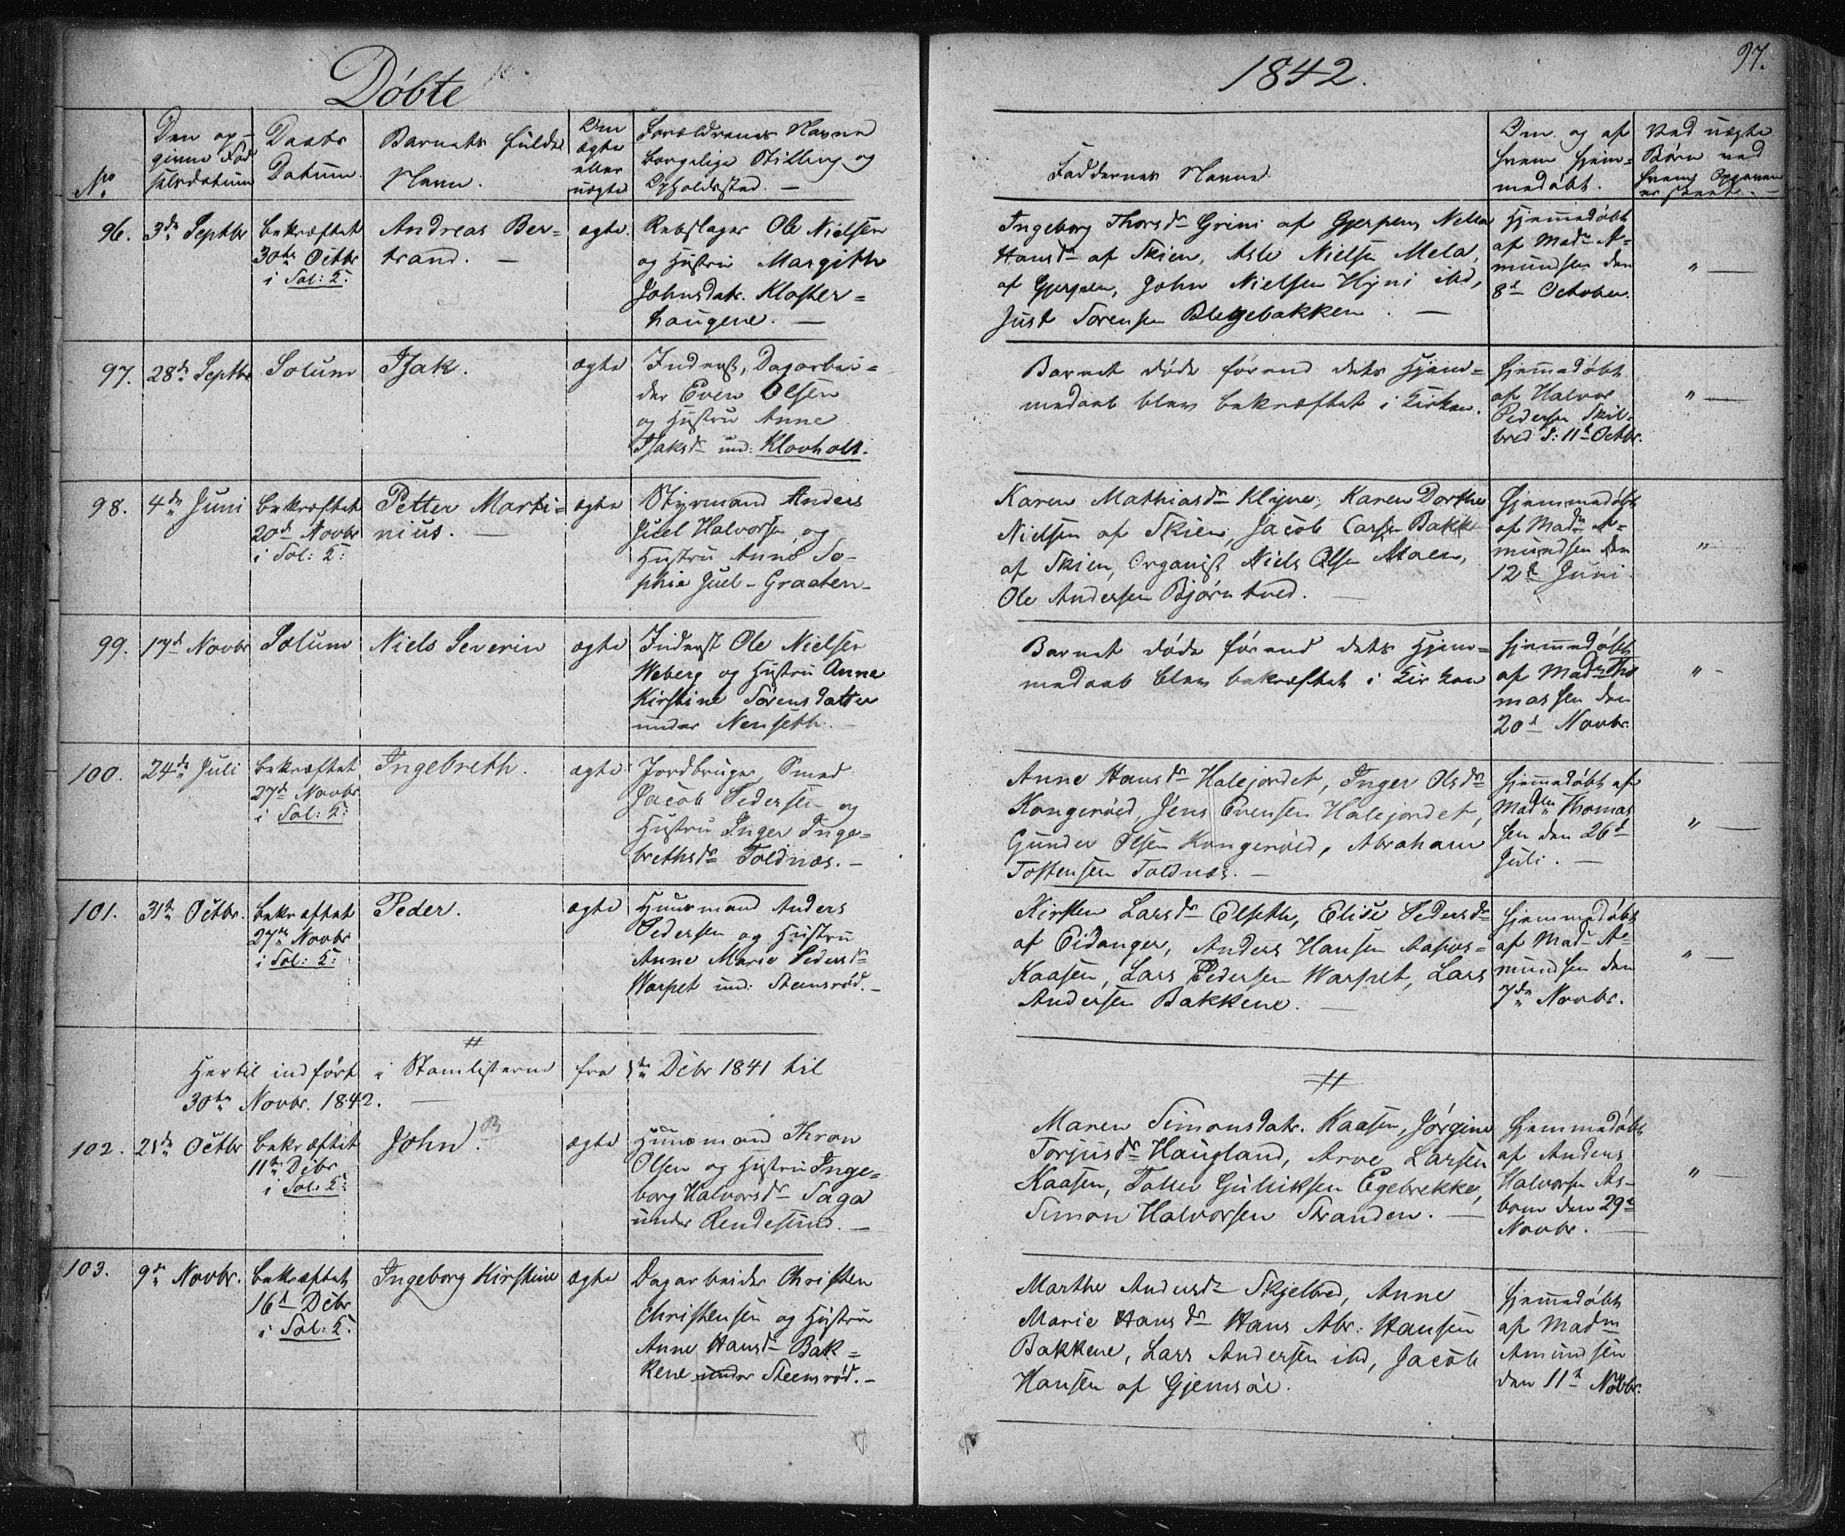 Døbte
1842.
97.
No
Den op-
givne Fød
selsdatum
Daabs
Datum.
Barnets fulde
Navn.
Om
ægte
eller
uægte
Forældrenes Navne
borgelige Stilling og
Opholdssted. —
Faddernes Navne.
Om og af
hvem hjem-
medøbt.
Ved uægte
Børn ved
hvem Opgaven
er skeet. —
96. 3de Septbr
bekræftet
30te Octbr
i Sol: K:
Andreas Ber-
trand. —
ægte.
Rebslager Ole Nielsen
og Hustru Margith
Johnsdatr. Kloster-
haugene. —
Ingeborg Thorsdr Grini af Gjerpen,
Hansdr af Skien, Asle Nielsen Mela,
af Gjerpen, John Nielsen Hyni ibd,
Just Sørensen Blegebakken. —
Hjemmedøbt
af Madm A-
mundsen den
8d October.
" —
97. 28de Septbr
Solum
Isak.
ægte
Inderst, Dagarbei-
der Even Olsen
og Hustru Anne
Isaksdr und. Klovholt.
Barnet døde førend dets Hjem-
medaab blev bekræftet i Kirken.
hjemmedøbt
af Halvor
Pedersen Skil-
bred d: 11t Octbr.
" —
98. 4de Juni
bekræftet
20d Novbr
i Sol: K:
Petter Marti-
nius. —
ægte
Styrmand Anders
Juel Halvorsen og
Hustru Anne So-
phie Juel - Graaten-
Karen Mathiasdr Klyve, Karen Dorthe
Nielsen af Skien, Jacob Carsen Bakke
af Skien, Organist Niels Olsen Moen,
Ole Andersen Bjørntved. —
Hjemmedøbt
af Madm A-
mundsen den
12te Juni.
" —
99. 17d Novbr
Solum
Niels Severin
ægte
Inderst Ole Nielsen
Weberg og Hustru Anne
Kirstine Sørensdatter
under Nenseth. —
Barnet døde førend dets Hjem-
medaab blev bekræftet i Kirken
hjemmedøbt
af Madm Tho
massen den
20d Novbr.
" —
100. 24de Juli
bekræftet
27d Novbr
i Sol: K:
Ingebreth.
ægte
Jordbruger, Smed
Jacob Pedersen og
Hustru Inger Inge-
brethsdr Foldnæs. —
Anne Hansdr Halejordet, Inger Olsdr
Kongerøed, Jens Evensen Halejordet,
Gunder Olsen Kongerøed, Abraham
Tostensen Foldnæs. —
hjemmedøbt af
Madm Thomas
sen den 26d
Juli. —
" —
101. 31te Octbr.
bekræftet
27de Novbr
i Sol: K:
Peder.
ægte
Huusmand Anders
Pedersen og Hustru
Anne Marie Pedersdr
Warpet und: Steensrød. —
Kirsten Larsdr Elseth, Elise Pedersdr
af Eidanger, Anders Hansen Aasos-
Kaasen, Lars Pedersen Warpet, Lars
Andersen Bakkene. —
hjemmedøbt
af Madm A-
mundsen den
7de Novbr.
" —
Hertil indført i Stamlisterne fra 1te Debr 1841 til
30te Novbr. 1842. —
102. 21de Octbr
bekræftet
11te Debr
i Sol: K:
John.
ægte
Huusmand Thron
Olsen og Hustru Inge-
borg Halvorsdr Saga
under Rendesund. —
Maren Simonsdatr. Kaasen, Jørgine
Torjusdr Haugland, Arve Larsen
Kaasen, Tollev Gulliksen Egebrekke,
Simon Halvorsen Stranden. —
hjemmedøbt
af Anders
Halvorsen As-
bom den 29d
Novbr. —
" —
103. 9de Novbr.
bekræftet
16d Debr
i Sol: K:
Ingeborg Kirstine
ægte
Dagarbeider Christen
Christensen og Hustru
Anne Hansdr Bak-
kene under Steensrød. —
Marthe Andersdr Skjelbred, Anne
Marie Hansdr Hans Abr: Hansen
Bakkene, Lars Andersen ibd, Jacob
Hansen af Gjemsøe.
hjemmedøbt
af Madm
Amundsen
den 11te Novbr.